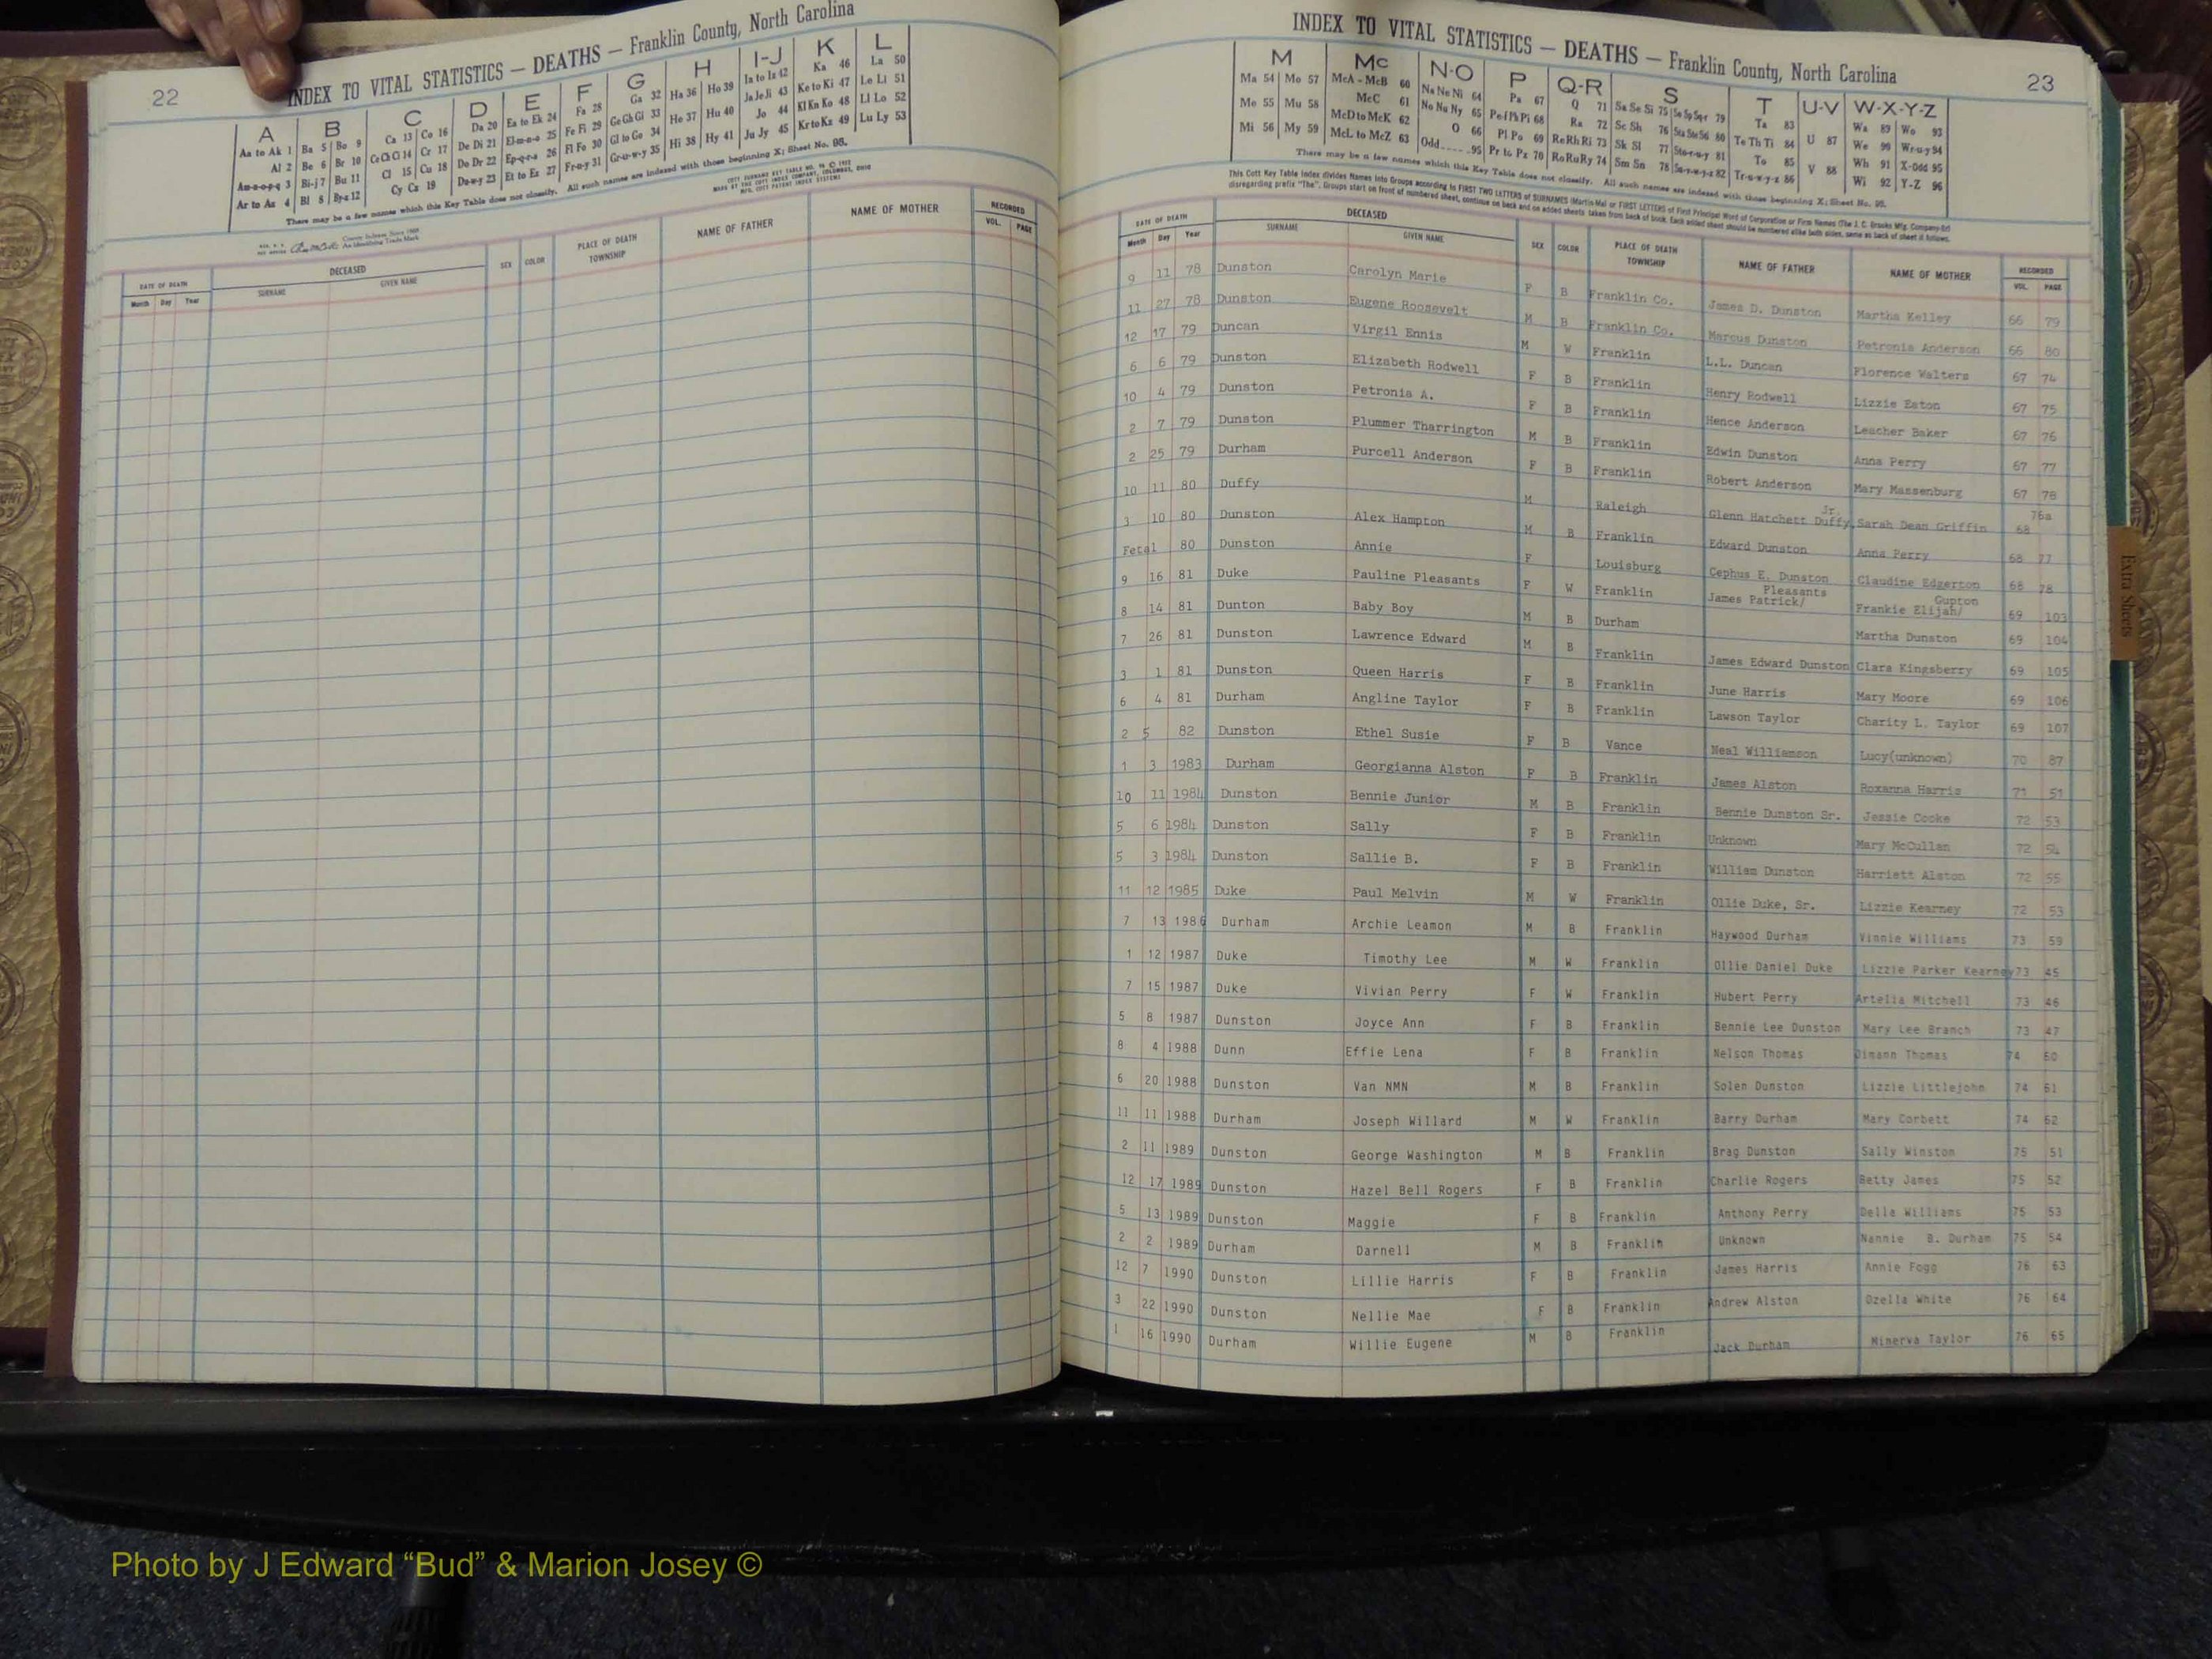 22
INDEX TO VITAL STATISTICS — DEATHS — Franklin County, North Carolina
A B C D E F G H I-J K L
Aa to Ak 1 Ba 5 Bo 9 Ca 13 Co 16 Da 20 Ea to Ek 24 Fa 28 Ga 32 Ha 36 Ho 39 Ia to Iz 42 Ka 46 La 50
Al 2 Be 6 Br 10 Ce Ch Ci 14 Cr 17 De Di 21 El-m-n-o 25 Fe Fi 29 Ge Gh Gi 33 He 37 Hu 40 Ja Je Ji 43 Ke to Ki 47 Le Li 51
Am-n-o-p-q 3 Bi-j 7 Bu 11 Cl 15 Cu 18 Do Dr 22 Ep-q-r-s 26 Fl Fo 30 Gl to Go 34 Hi 38 Hy 41 Jo 44 Kl Kn Ko 48 Ll Lo 52
Ar to Az 4 Bl 8 By-z 12 Cy Cz 19 Du-w-y 23 Et to Ez 27 Fr-u-y 31 Gr-u-w-y 35 Ju Jy 45 Kr to Kz 49 Lu Ly 53
There may be a few names which this Key Table does not classify. All such names are indexed with those beginning X; Sheet No. 95.
DATE OF DEATH DECEASED SEX COLOR PLACE OF DEATH TOWNSHIP NAME OF FATHER NAME OF MOTHER RECORDED
Month Day Year SURNAME GIVEN NAME VOL. PAGE
INDEX TO VITAL STATISTICS — DEATHS — Franklin County, North Carolina
23
M Mc N-O P Q-R S T U-V W-X-Y-Z
Ma 54 Mo 57 McA - McB 60 Na Ne Ni 64 Pa 67 Q 71 Sa Se Si 75 So Sp Sq-r 79 Ta 83 U 87 Wa 89 Wo 93
Me 55 Mu 58 McC 61 No Nu Ny 65 Pe f Ph Pi 68 Ra 72 Sc Sh 76 Sta Ste Sti 80 Te Th Ti 84 We 90 Wr-u-y 94
Mi 56 My 59 McD to McK 62 O 66 Pl Po 69 Re Rh Ri 73 Sk Sl 77 Sto-r-u-y 81 To 85 V 88 Wh 91 X-Odd 95
McL to McZ 63 Odd 95 Pr to Pz 70 Ro Ru Ry 74 Sm Sn 78 Su-v-w-y-z 82 Tr-u-w-y-z 86 Wi 92 Y-Z 96
There may be a few names which this Key Table does not classify. All such names are indexed with those beginning X; Sheet No. 95.
This Cott Key Table Index divides Names into Groups according to FIRST TWO LETTERS of SURNAMES (Martin-Ma) or FIRST LETTERS of First Principal Word of Corporation or Firm Names (The J. C. Brooks Mfg. Company-Br)
disregarding prefix "The". Groups start on front of numbered sheet, continue on back and on added sheets taken from back of book. Each added sheet should be numbered alike both sides, same as back of sheet it follows.
DATE OF DEATH DECEASED SEX COLOR PLACE OF DEATH TOWNSHIP NAME OF FATHER NAME OF MOTHER RECORDED
Month Day Year SURNAME GIVEN NAME VOL. PAGE
9 11 78 Dunston Carolyn Marie F B Franklin Co. James D. Dunston Martha Kelley 66 79
11 27 78 Dunston Eugene Roosevelt M B Franklin Co. Marcus Dunston Petronia Anderson 66 80
12 17 79 Duncan Virgil Ennis M W Franklin L.L. Duncan Florence Walters 67 74
6 6 79 Dunston Elizabeth Rodwell F B Franklin Henry Rodwell Lizzie Eaton 67 75
10 4 79 Dunston Petronia A. F B Franklin Hence Anderson Leacher Baker 67 76
2 7 79 Dunston Plummer Tharrington M B Franklin Edwin Dunston Anna Perry 67 77
2 25 79 Durham Purcell Anderson F B Franklin Robert Anderson Mary Massenburg 67 78
10 11 80 Duffy M Raleigh Glenn Hatchett Duffy, Jr. Sarah Dean Griffin 68 76a
3 10 80 Dunston Alex Hampton M B Franklin Edward Dunston Anna Perry 68 77
Fetal 80 Dunston Annie F Louisburg Cephus E. Dunston Claudine Edgerton 68 78
9 16 81 Duke Pauline Pleasants F W Franklin James Patrick/ Pleasants Frankie Elijah/ Gupton 69 103
8 14 81 Dunton Baby Boy M B Durham Martha Dunston 69 104
7 26 81 Dunston Lawrence Edward M B Franklin James Edward Dunston Clara Kingsberry 69 105
3 1 81 Dunston Queen Harris F B Franklin June Harris Mary Moore 69 106
6 4 81 Durham Angline Taylor F B Franklin Lawson Taylor Charity L. Taylor 69 107
2 5 82 Dunston Ethel Susie F B Vance Neal Williamson Lucy(unknown) 70 87
1 3 1983 Durham Georgianna Alston F B Franklin James Alston Roxanna Harris 71 51
10 11 1984 Dunston Bennie Junior M B Franklin Bennie Dunston Sr. Jessie Cooke 72 53
5 6 1984 Dunston Sally F B Franklin Unknown Mary McCullan 72 54
5 3 1984 Dunston Sallie B. F B Franklin William Dunston Harriett Alston 72 55
11 12 1985 Duke Paul Melvin M W Franklin Ollie Duke, Sr. Lizzie Kearney 72 53
7 13 1986 Durham Archie Leamon M B Franklin Haywood Durham Vinnie Williams 73 59
1 12 1987 Duke Timothy Lee M W Franklin Ollie Daniel Duke Lizzie Parker Kearney 73 45
7 15 1987 Duke Vivian Perry F W Franklin Hubert Perry Artelia Mitchell 73 46
5 8 1987 Dunston Joyce Ann F B Franklin Bennie Lee Dunston Mary Lee Branch 73 47
8 4 1988 Dunn Effie Lena F B Franklin Nelson Thomas Thomas 74 60
6 20 1988 Dunston Van NMN M B Franklin Solen Dunston Lizzie Littlejohn 74 61
11 11 1988 Durham Joseph Willard M W Franklin Barry Durham Mary Corbett 74 62
2 11 1989 Dunston George Washington M B Franklin Brag Dunston Sally Winston 75 51
12 17 1989 Dunston Hazel Bell Rogers F B Franklin Charlie Rogers Betty James 75 52
5 13 1989 Dunston Maggie F B Franklin Anthony Perry Della Williams 75 53
2 2 1989 Durham Darnell M B Franklin Unknown Nannie B. Durham 75 54
12 7 1990 Dunston Lillie Harris F B Franklin James Harris Annie Fogg 76 63
3 22 1990 Dunston Nellie Mae F B Franklin Andrew Alston Ozella White 76 64
1 16 1990 Durham Willie Eugene M B Franklin Jack Durham Minerva Taylor 76 65
Extra Sheets
Photo by J Edward “Bud” & Marion Josey ©